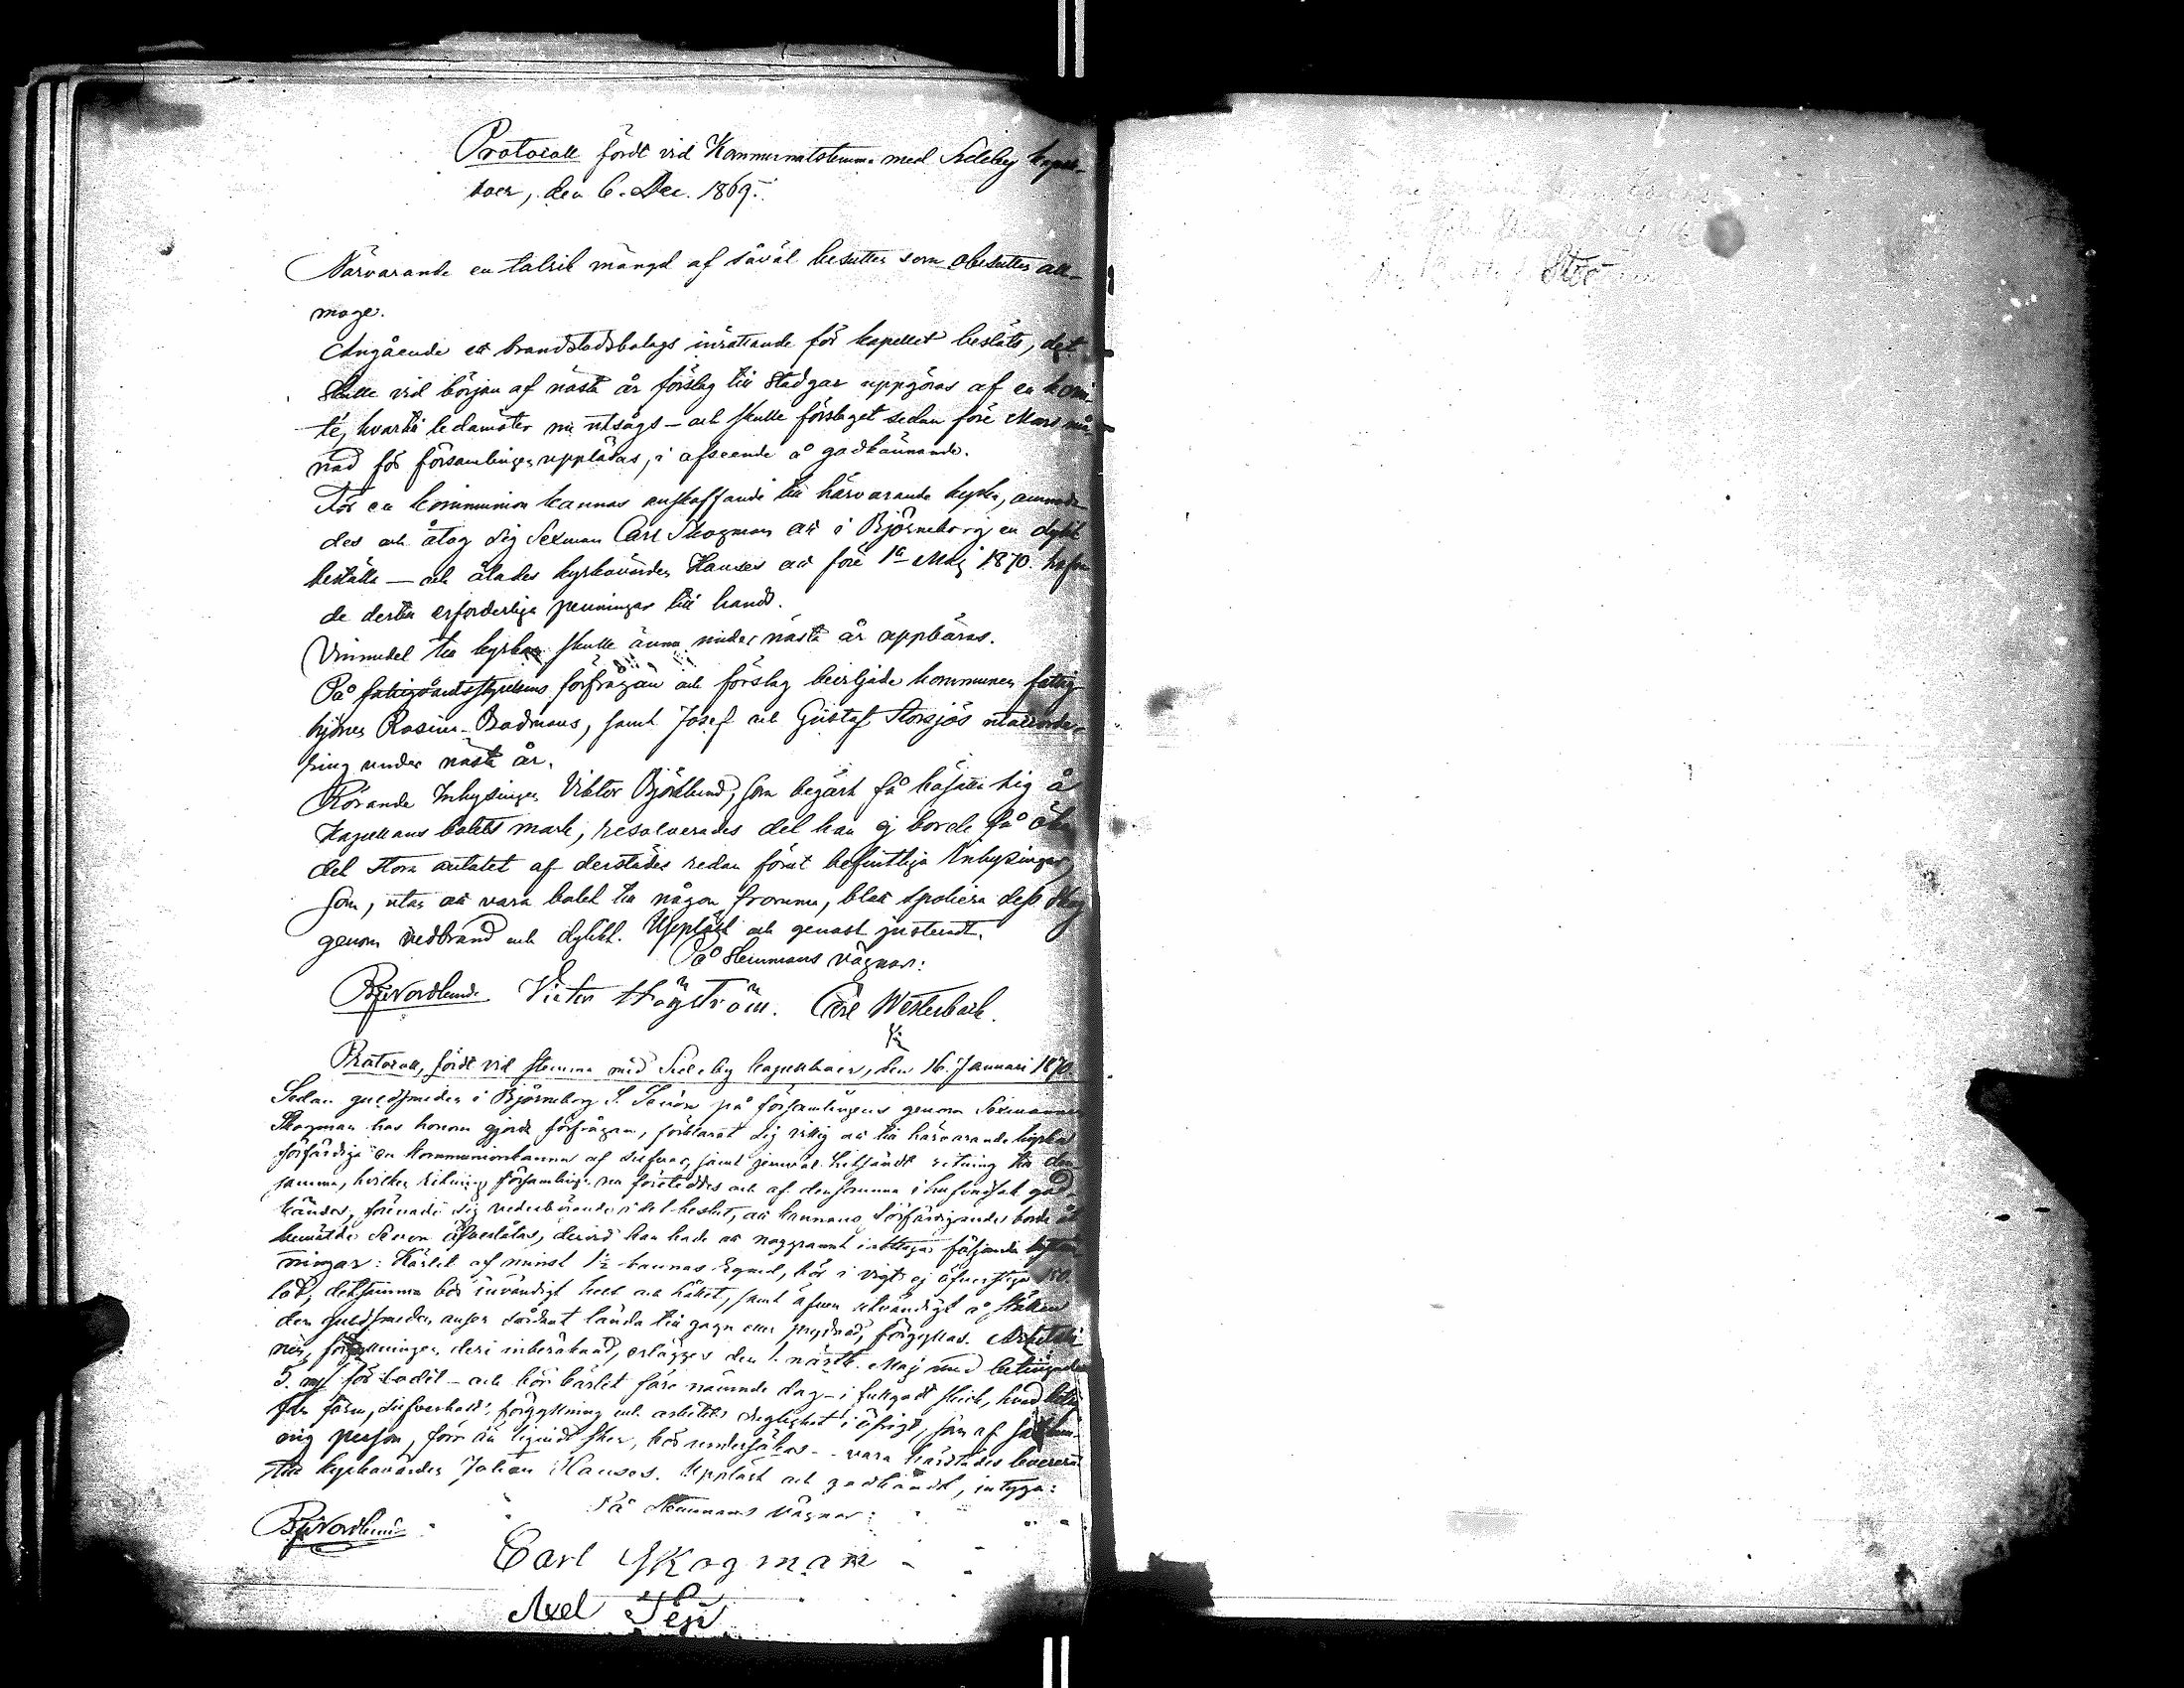 Protocoll fördt vid Kommunalstemma med Sideby kapell-
boer, den 6. Dec. 1869.
Närvarande en talrik mängd af såväl besuttne som obesuttne all-
moge.
Angående ett brandstodsbolags inrättande för kapellet beslöts, det
skulle vid början af nästa år förslag till stadgar uppgöras af en komi-
té, hvartill ledamöter nu utsågs – och skulle förslaget sedan före Mars må-
nad för församlingen uppläsas, i afseende å godkännande.
För en kommunion kannas anskaffande till härvarande kyrka, anmoda-
des och åtog sig Sexman Carl Skogman att i Björneborg en dylik
beställa – och ålades kyrkovärden Hauses att före 1a Maj 1870. hafva
de dertill erforderliga penningar till hands.
Vinmedel till kyrkan skulle ännu under nästa år uppbäras.
På fattigvårdsstyrelsens förfrågan och förslag beviljade kommunen fattig-
hjonen Rosina Badmans, samt Josef och Gustaf Storsjös utackorde-
ring under nästa år.
Rörande Inhysingen Viktor Björklund, som begärt få bosätta sig å
Kapellans bolets mark, resolverades det han ej borde få öka
det stora antalet af derstädes redan förut befintliga Inhysingar,
som, utan att vara bolet till någon fromma, blott spoliera dess skog
genom vedbrand och dylikt. Uppläst och genast justeradt.
På Stemmans vägnar:
Nordlund Victor Högström. Carl Westerback.
Protocoll, fördt vid stemma med Sideby kapellboer, den 16. Januari 1870.
Sedan guldsmeden i Björneborg S. på församlingens genom Sexmannen
Skogman hos honom gjorda förfrågan, förklarat sig villig att till härvarande kyrka
förfärdiga en kommunionkanna af silfver, samt jemväl hitsändt ritning till den-
samma, hvilken ritning församlingen nu företeddes och af densamma i hufvudsak god-
kändes, förenade sig vederbörande i det beslut, att kannans förfärdigande borde åt
bemälde öfverlåtas, dervid han hade att noggrannt iakttaga följande
ningar: Kärlet af minst 1½ kannas rymd, bör i vigt ej öfverstiga 150.
lod; detsamma bör invändigt helt och hållet, samt äfven utvändigt å ställen
der guldsmeden anser sådant lända till gagn eller prydnad, förgyllas. Arbetslö-
nen, förgyllningen deri inberäknad, erlägges den 1. nästk. Maj med betingade
5. mk för lodet – och bör kärlet före nämnde dag – i fullgodt skick, hvad
form, silfverhalt, förgyllning och arbetets i öfrigt, som af
nig person, förr än liqvid sker, bör undersökas – vara härstädes levererat
till kyrkovärden Johan Hauses. Uppläst och godkändt, intyga:
På Stemmans vägnar:
Nordlund
Carl Skogman
Axel